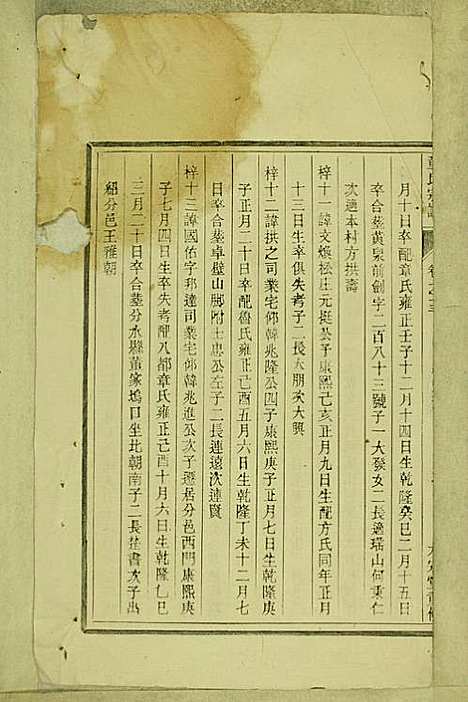 月十日卒配章氏雍正壬子十二月十四日生乾隆癸巳二月十五日
卒合葬黄泉前劍字二百八十三號子一大發女二長適瑤山何秉仁
次適本村方拱壽
梓十一諱文煥松庄元挺公子康熙己亥正月九日生配方氏同年正月
十三日生卒俱失考子二長大朋次大興
梓十二諱拱之司業宅仰韓兆隆公四子康熙庚子正月七日生乾隆庚
子正月二十日卒配魯氏雍正己酉五月六日生乾隆丁未十二月七
日卒合葬卓壁山脚附士忠公左子二長連遠次連賢
梓十三諱國佑字邦達司業宅仰韓兆進公次子遷居分邑西門康熙庚
子七月四日生卒失考配八都章氏雍正己酉十月六日生乾隆乙巳
三月二十日卒合葬分水縣董家塢口坐北朝南子二長 書次子出
紹分邑王雅朝